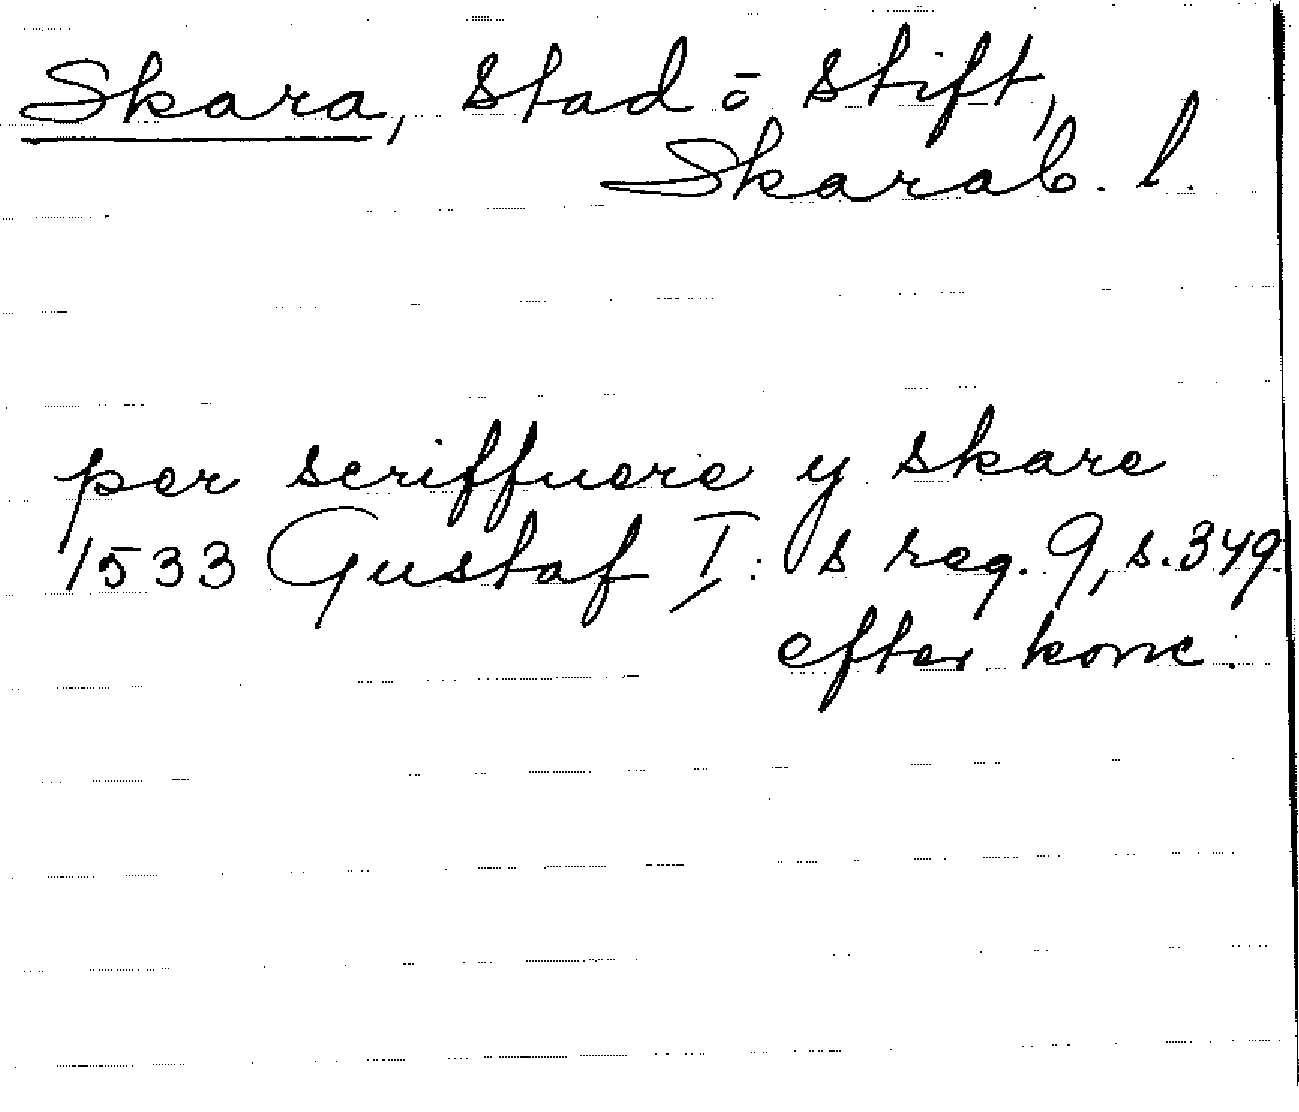 Skara, stad o stift,
Skarab. l.
per scriffuere y skare
1533 Gustaf I:s reg. 9, s. 349
efter konc.